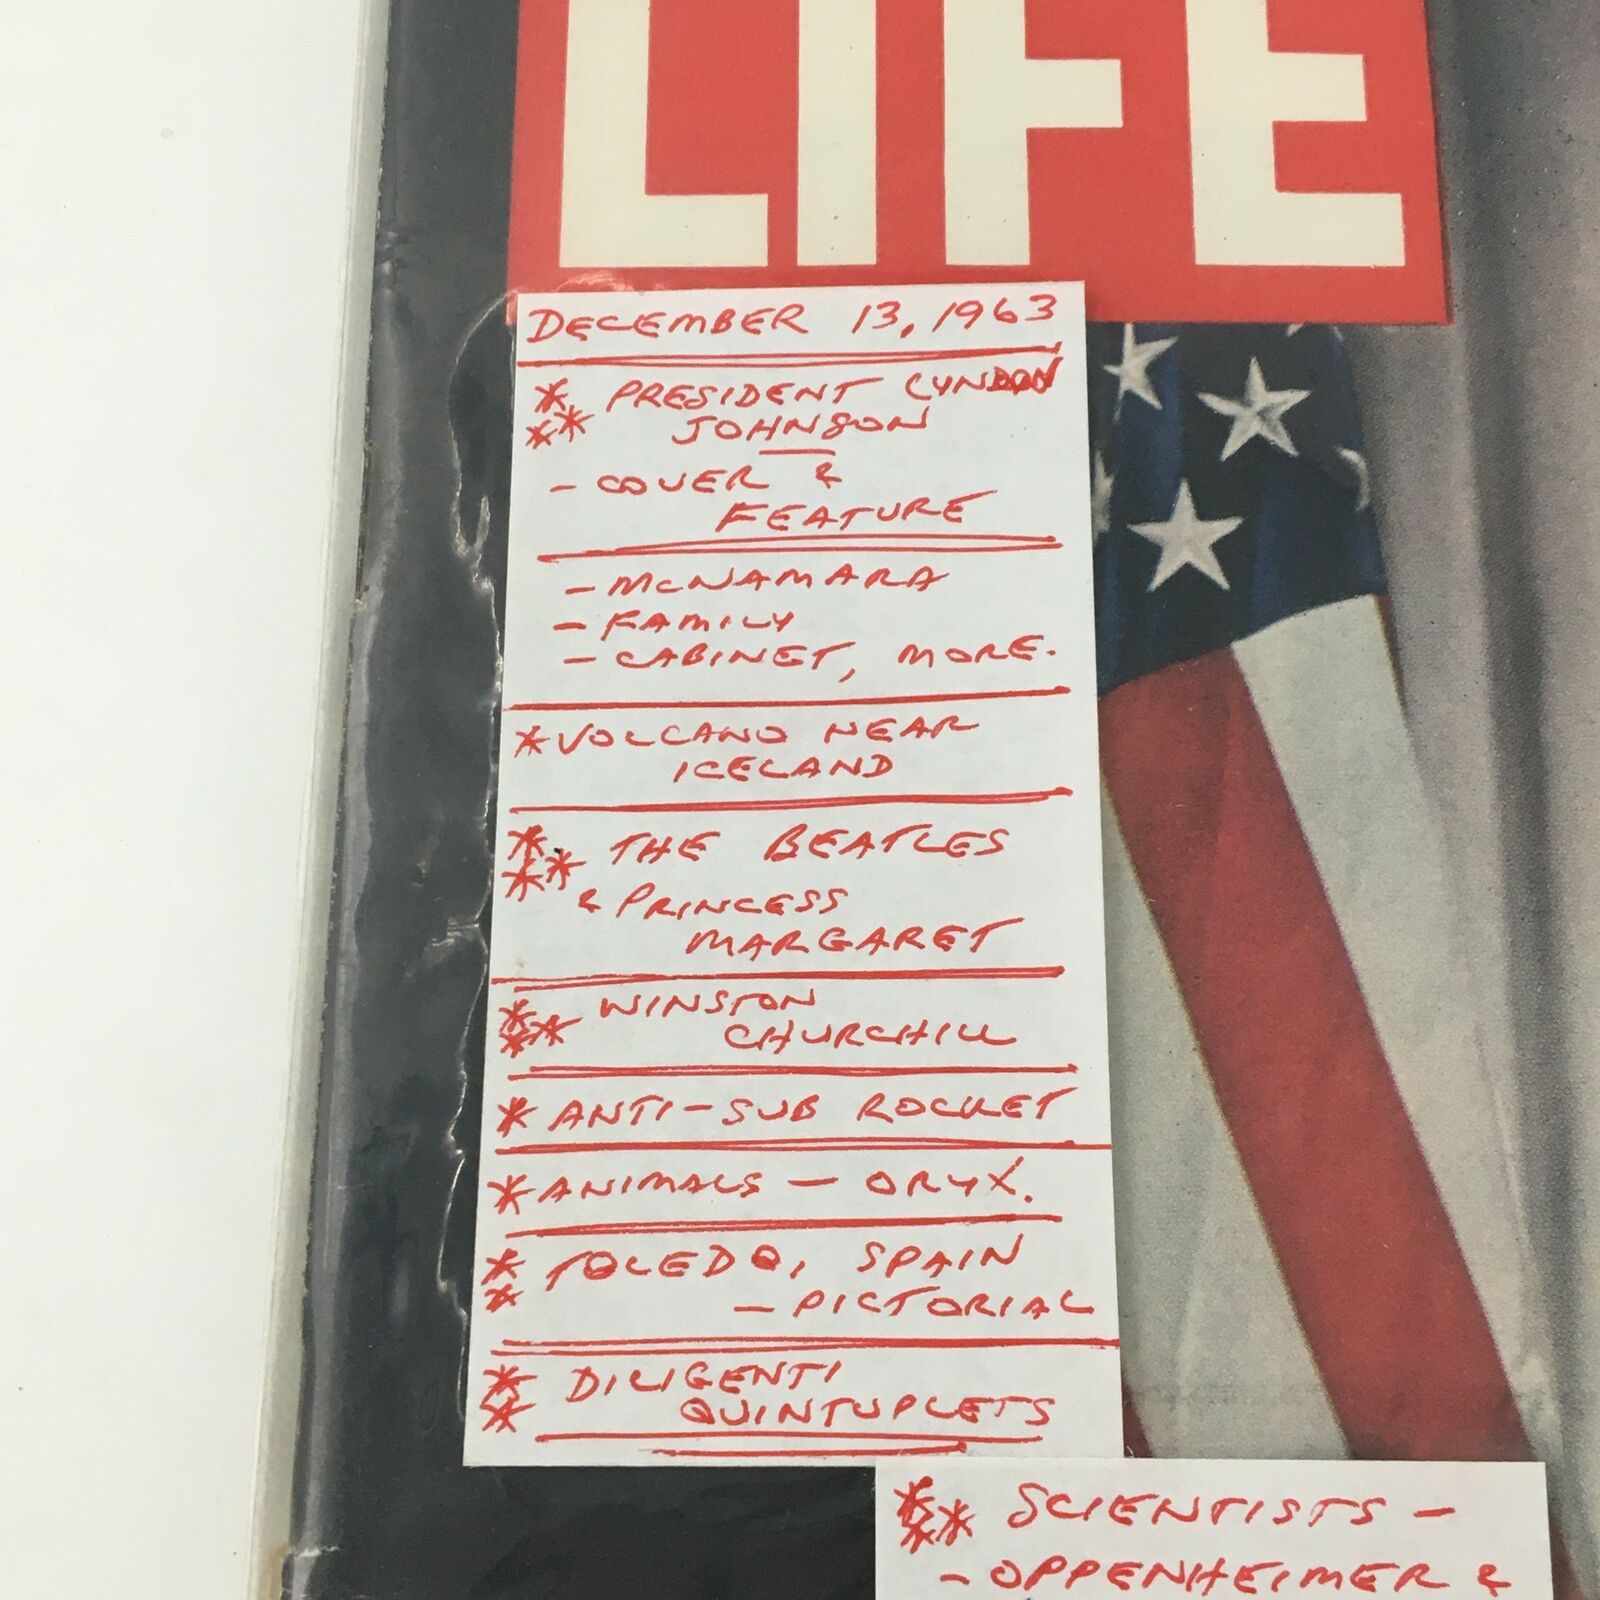 LIFE
DECEMBER 13, 1963
* PRESIDENT LYNDON
** JOHNSON
- COVER &
FEATURE
- MCNAMARA
- FAMILY
- CABINET, MORE.
* VOLCANO NEAR
ICELAND
* THE BEATLES
** & PRINCESS
MARGARET
* WINSTON
** CHURCHILL
* ANTI-SUB ROCKET
* ANIMALS - ORYX.
* TOLEDO, SPAIN
* - PICTORIAL
* DILIGENTI
* QUINTUPLETS
*** SCIENTISTS -
- OPPENHEIMER &